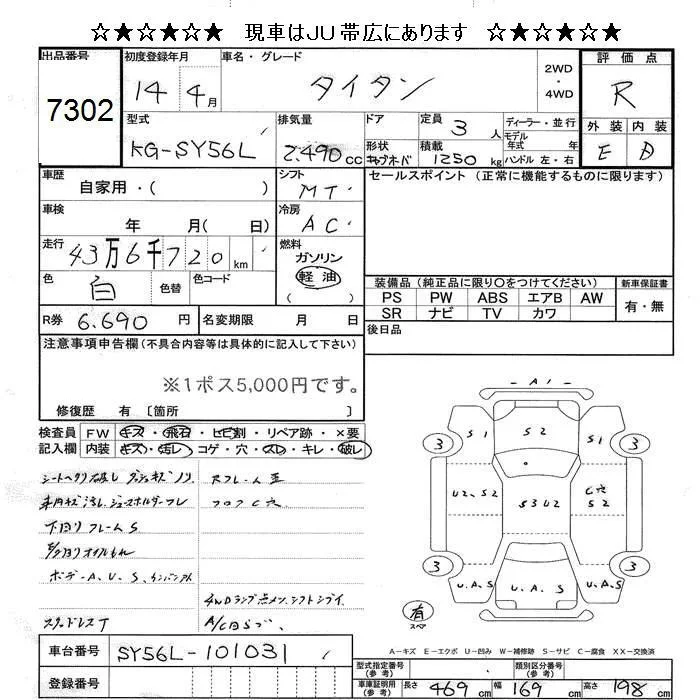 ☆★☆★☆★ 現車はJU帯広にあります ☆★☆★☆★
出品番号 初度登録年月 車名・グレード 2WD・4WD 評価点
7302 14 4月 タイタン R
型式 排気量 ドア 定員 ディーラー・並行 外装 内装
KG-SY56L 2.490cc 3人 モデル年式 年 E D
形状 積載 1250kg ハンドル 左・右
車歴 自家用・( ) シフト MT セールスポイント(正常に機能するものに限ります)
車検 年 月( 日) 冷房 AC
走行 43万6千720km 燃料 ガソリン
色 白 色替 色コード 軽油
( )
装備品(純正品に限り○をつけてください) 新車保証書
PS PW ABS エアB AW 有・無
SR ナビ TV カワ
R券 6.690円 名変期限 月 日 後日品
注意事項申告欄(不具合内容等は具体的に記入して下さい)
※1ポス5,000円です。
修復歴 有 〔箇所
検査員 FW キズ・飛石・ヒビ割・リペア跡・×要
記入欄 内装 キズ・汚レ・コゲ・穴・スレ・キレ・破レ
フロアC穴
下回りフレームS
ボデーA、U、S、
4WDランプ点メツ、シフトシブイ
スタッドレスT
A1
S1 S2 S1
3 3
U2、S2 S3U2 C穴 S2
3 3
U、A、S U、A、S U、A、S
有
スペア
A-キズ E-エクボ U-凹み W-補修跡 S-サビ C-腐食 XX-交換済
車台番号 SY56L-101031
登録番号
型式指定番号(参考) 類別区分番号(参考)
車庫証明用(参考) 長さ 469cm 幅 169cm 高さ 198cm